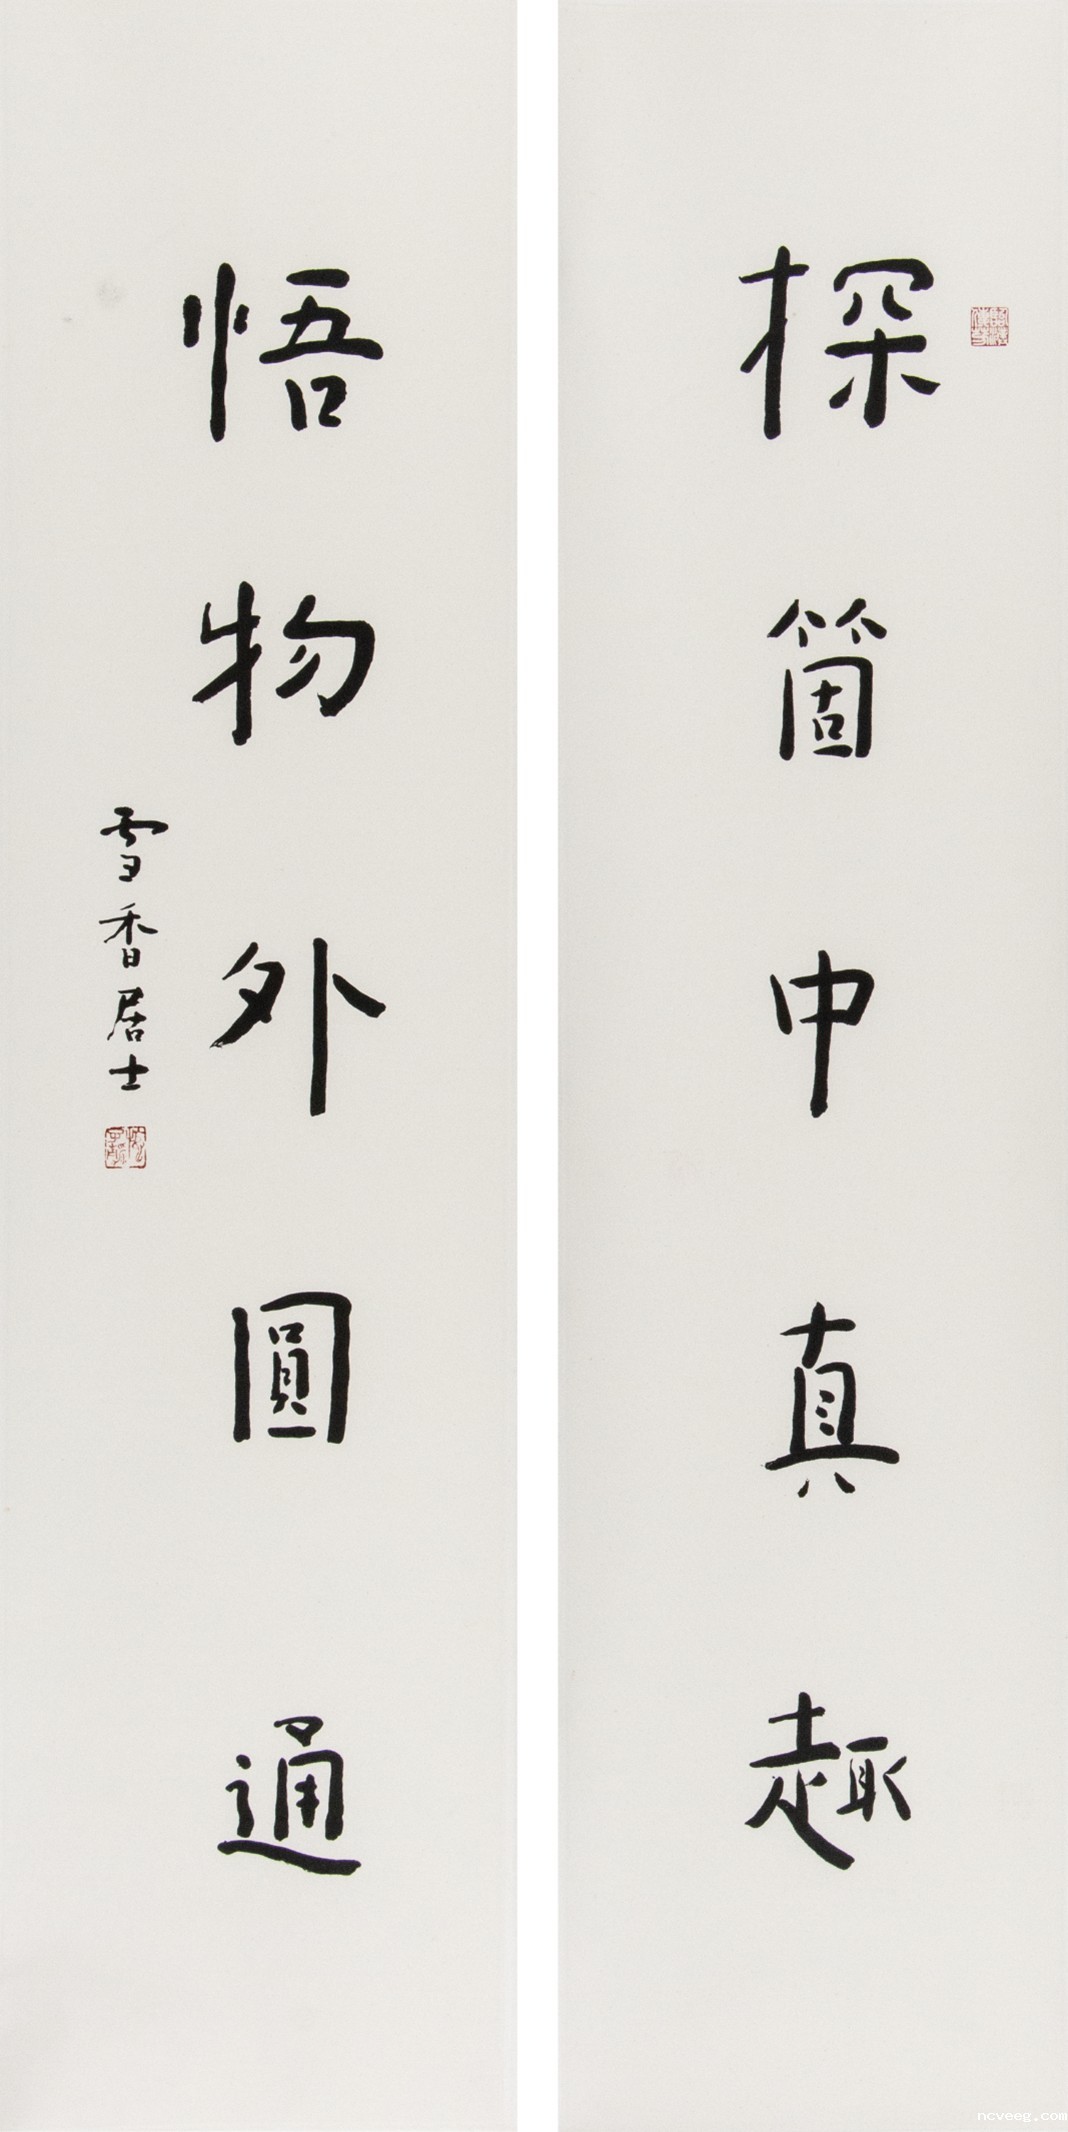 探箇中真趣
悟物外圓通
雪香居士
ncveeg.com